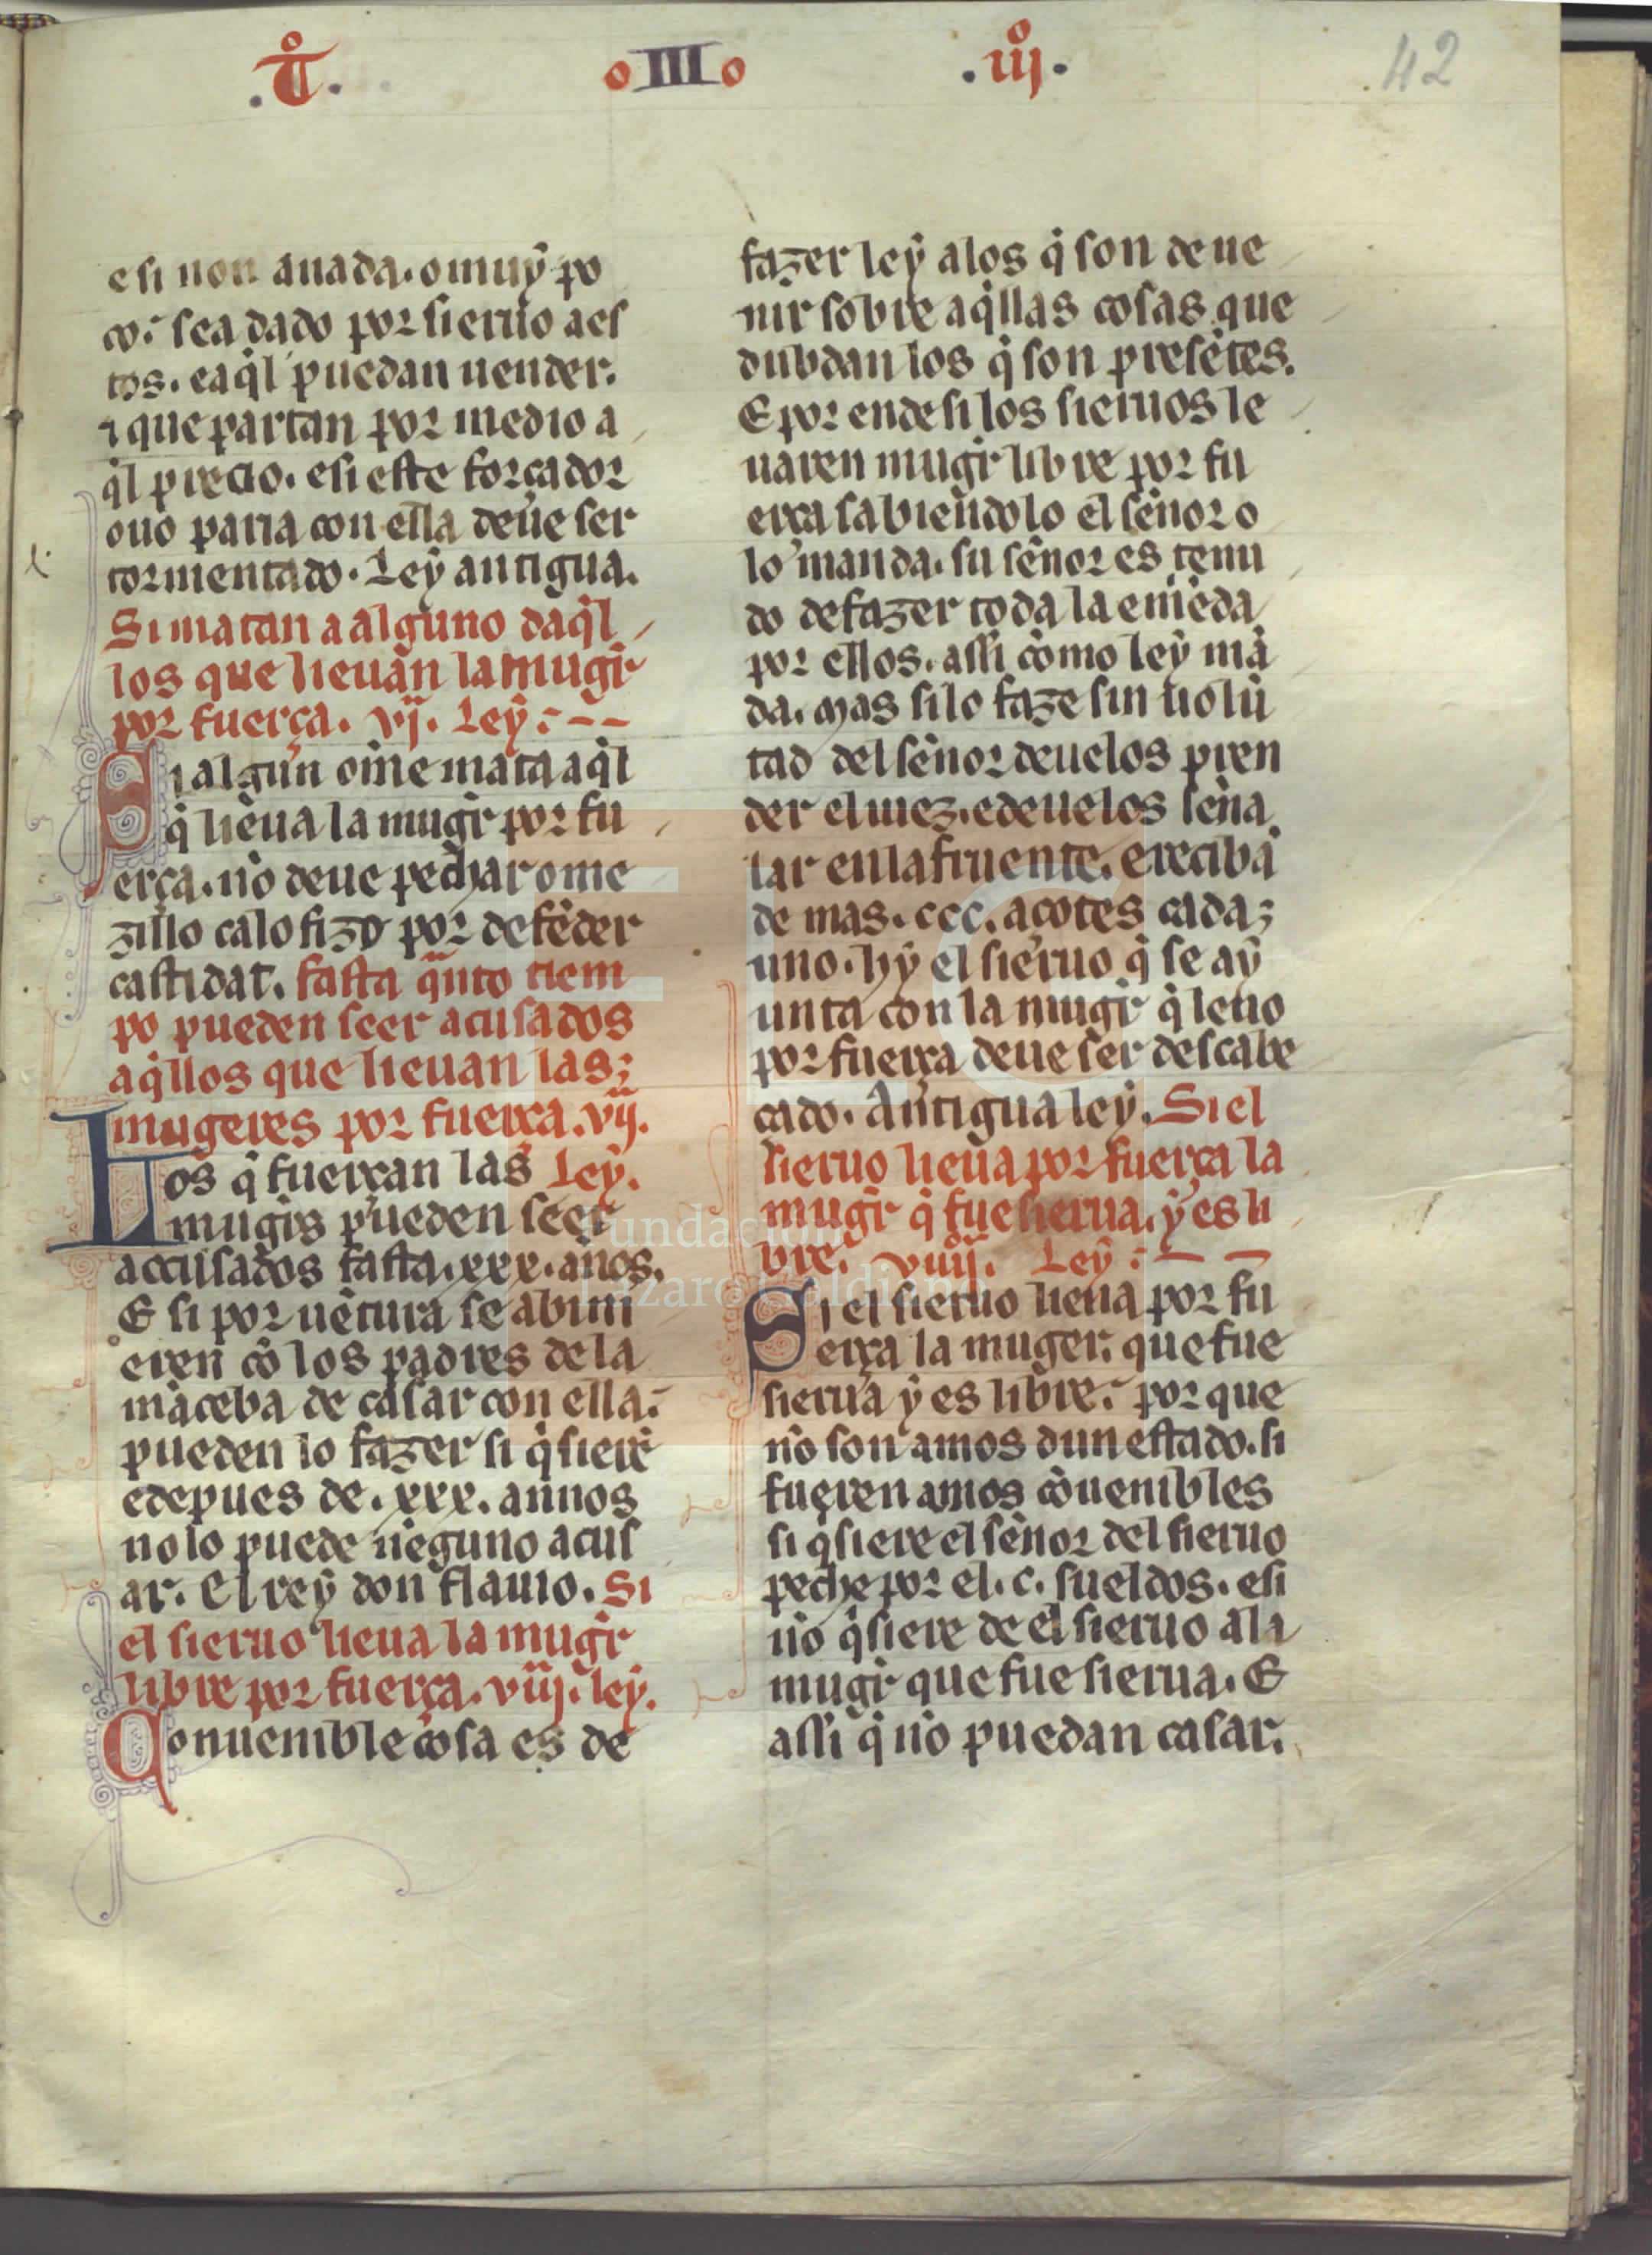 .Tᵒ.
o III o
.iijᵒ.
42
e si non auada. o muy po
co: sea dado por sieruo a es
tos. e aq̇l puedan uender.
⁊ que partan por medio a
q̇l precio. e si este forçador
ouo paria con ella deue ser
tormentado. Ley antigua.
Si matan a alguno daq̇l
los que lieuan la mugr̃
por fuerça. vj. Ley:--
Si algun om̃e mata aq̇l
q̇ lieua la mugr̃ por fu
erça. nõ deue pechar ome
zillo ca lo fizo por defẽder
castidat. fasta q̃nto tiem
po pueden seer acusados
aq̇llos que lieuan las;
mugeres por fuerça. vij.
Los q̇ fuerçan las Ley.
mugr̃s pueden seer
accusados fasta. xxx. años.
E si por uẽtura se abini
eren cõ los padres de la
mãceba de casar con ella:
pueden lo fazer si q̇sierẽ
e depues de. xxx. annos
no lo puede nĩeguno acus
ar. El rey don flauio. Si
el sieruo lieua la mugr̃
libre por fuerça. viij. ley.
Conuenible cosa es de
fazer ley a los q̇ son de ue
nir sobre aq̇llas cosas que
dubdan los q̇ son presẽtes.
E por ende si los sieruos le
uaren mugr̃ libre por fu
erça sabiendolo el señor o
lo manda. su señor es tenu
do de fazer toda la emiẽda
por ellos. assi como ley mã
da. mas si lo faze sin uolũ
tad del señor deuelos pren
der el iuez. e deuelos seña
lar en la fruente. e reciba
de mas. ccc. açotes cada;
uno. hy el sieruo q̇ se ay
unta con la mugr̃ q̇ leuo
por fuerça deue ser descabe
çado. Antigua ley. Si el
sieruo lieua por fuerça la
mugr̃ q̇ fue sierua. y es li
bre. viiij. Ley:--
Si el sieruo lieua por fu
erça la muger. que fue
sierua y es libre: por que
nõ son amos dun estado. si
fueren amos cõuenibles
si q̇siere el señor del sieruo
peche por el. c. sueldos. e si
nõ q̇siere de el sieruo a la
mugr̃ que fue sierua. E
assi q̇ nõ puedan casar.
Fundación
Lázaro Galdiano